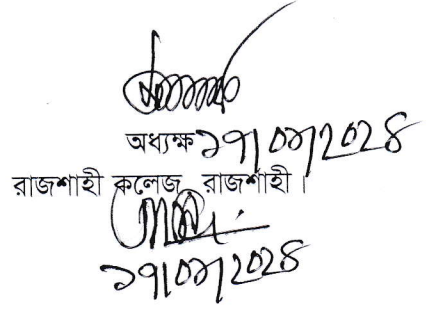 অধ্যক্ষ ১৭|০৯|২০২৪
রাজশাহী কলেজ, রাজশাহী।
১৭|০৯|২০২৪